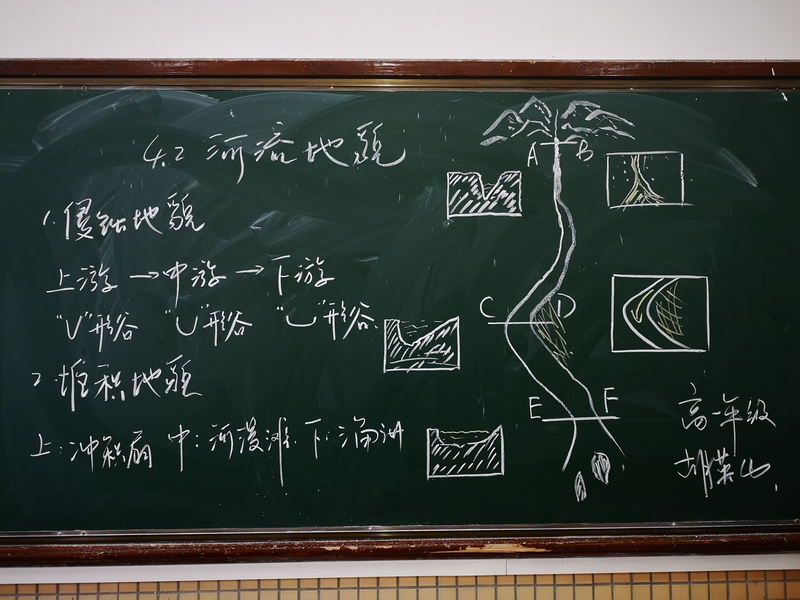 4.2 河流地貌
1. 侵蚀地貌
上游→中游→下游
"V"形谷 "U"形谷 "︶"形谷
2. 堆积地貌
上:冲积扇 中:河漫滩 下:三角洲
A B
C D
E F
高一年级